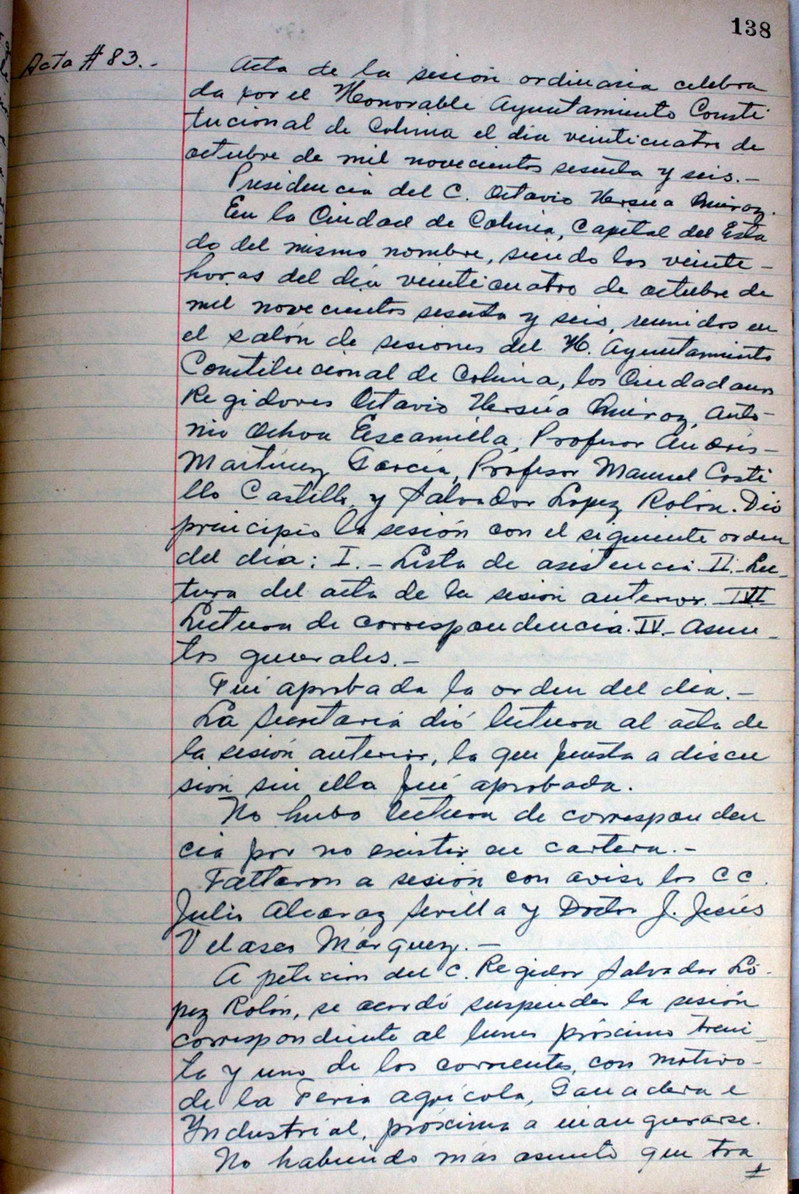 138
Acta # 83.-
Acta de la sesión ordinaria celebra
da por el Honorable Ayuntamiento Consti
tucional de Colima el dia veinticuatro de
octubre de mil novecientos sesenta y seis.-
Presidencia del C. Octavio Ursúa Quiroz.
En la Ciudad de Colima, Capital del Esta
do del mismo nombre, siendo las veinte-
horas del día veinticuatro de octubre de
mil novecientos sesenta y seis, reunidos en
el salón de sesiones del H. Ayuntamiento
Constitucional de Colima, los Ciudadanos
Regidores Octavio Ursúa Quiroz, Anto-
nio Ochoa Escamilla, Profesor Andrés-
Martínez García, Profesor Manuel Costi
llo Castillo, y Salvador López Rolón. Dió
principio la sesión con el siguiente orden
del día: I.- Lista de asistencia. II.- Lec-
tura del acta de la sesión anterior. III
Lectura de correspondencia. IV.- Asun-
tos generales.-
Fué aprobada la orden del dia.-
La Secretaría dió lectura al acta de
la sesión anterior, la que puesta a discu
sión sin ella fué aprobada.
No hubo lectura de corresponden
cia por no existir en cartera.-
Faltaron a sesión con aviso los CC.
Julio Alcaraz Sevilla y Doctor J. Jesús
Velasco Márquez.-
A petición del C. Regidor Salvador Ló-
pez Rolón, se acordó suspender la sesión
correspondiente al lunes próximo trein-
ta y uno de los corrientes, con motivo-
de la Feria agrícola, Ganadera e
Industrial, próxima a inaugurarse.
No habiendo más asunto que tra